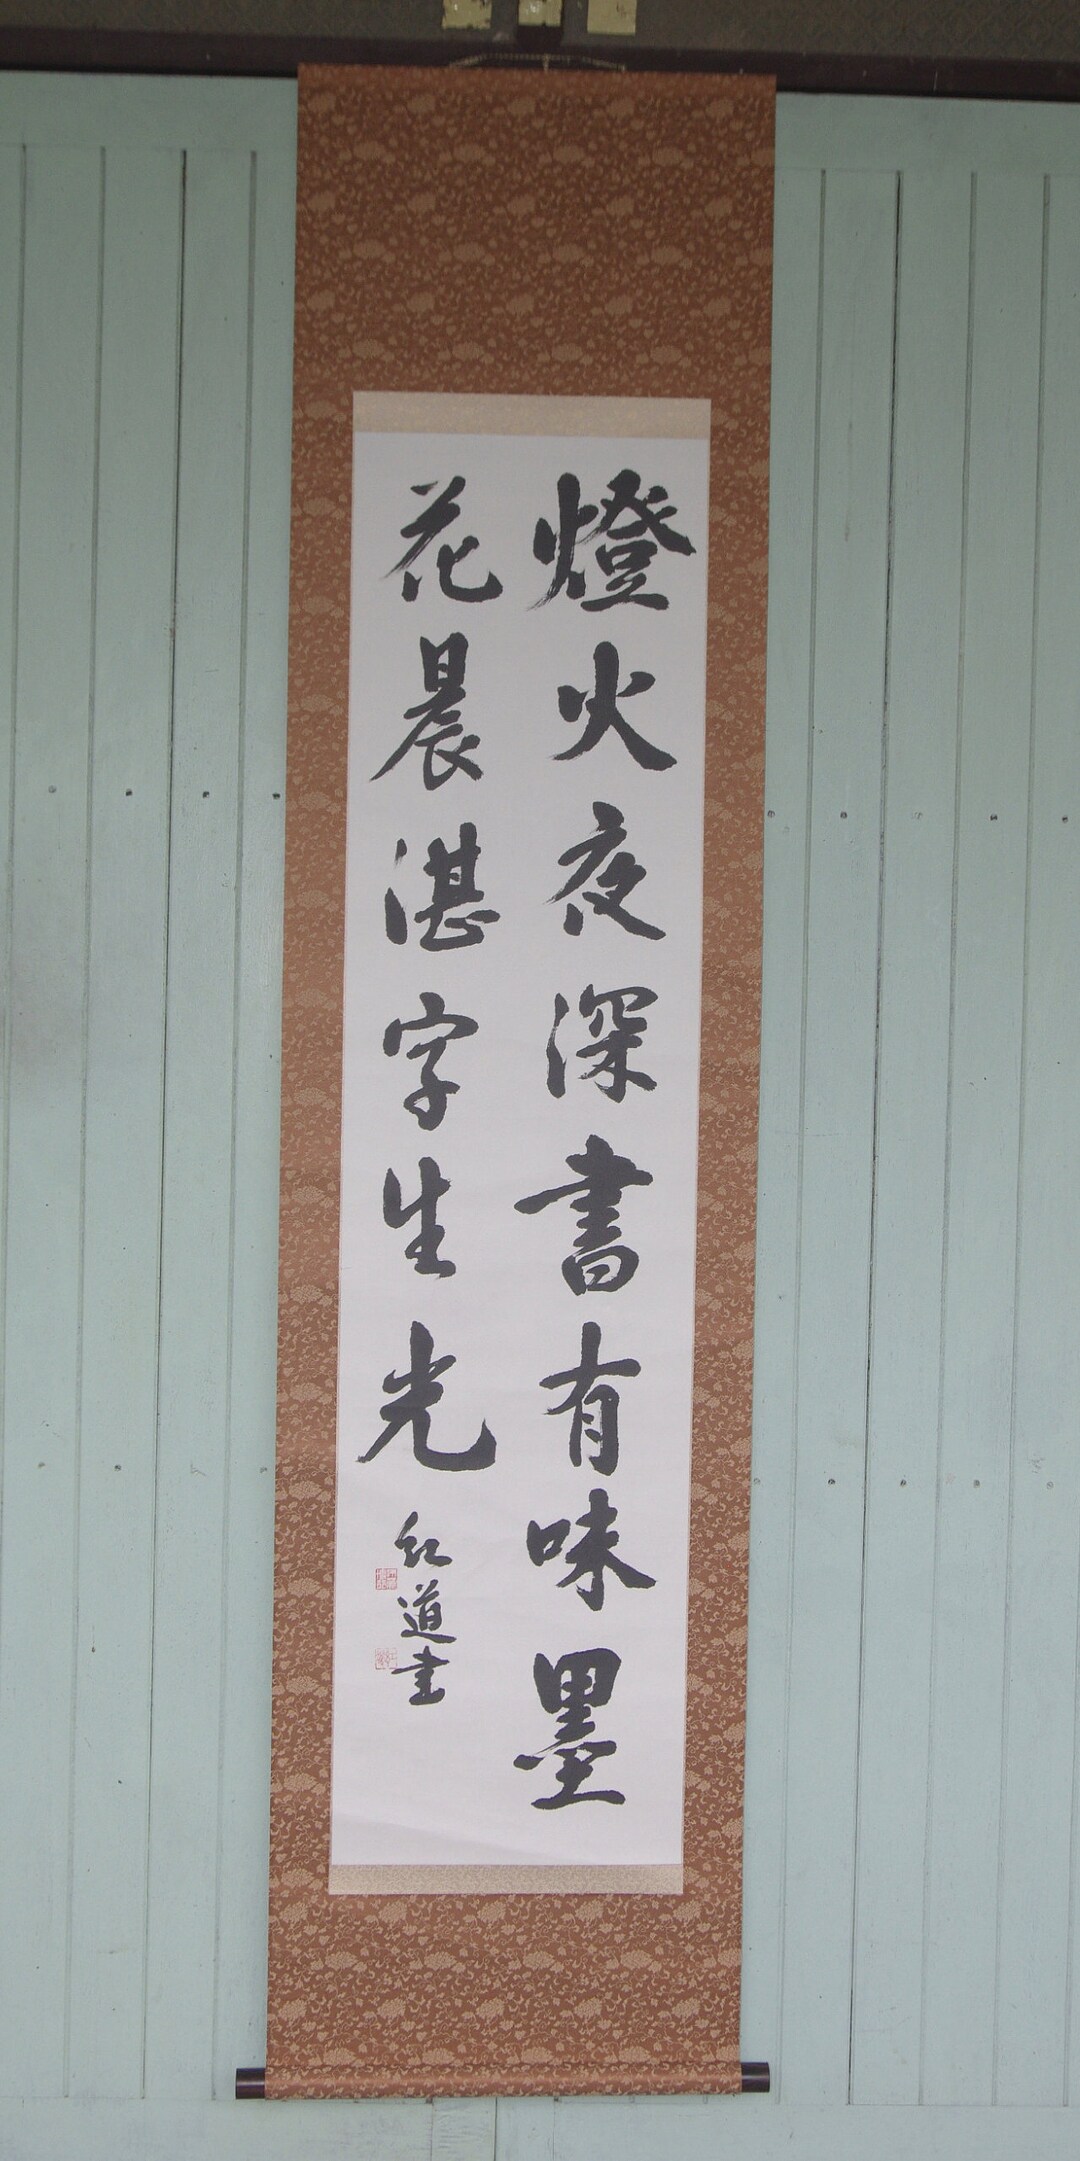 燈火夜深書有味墨
花晨湛字生光
紅道書